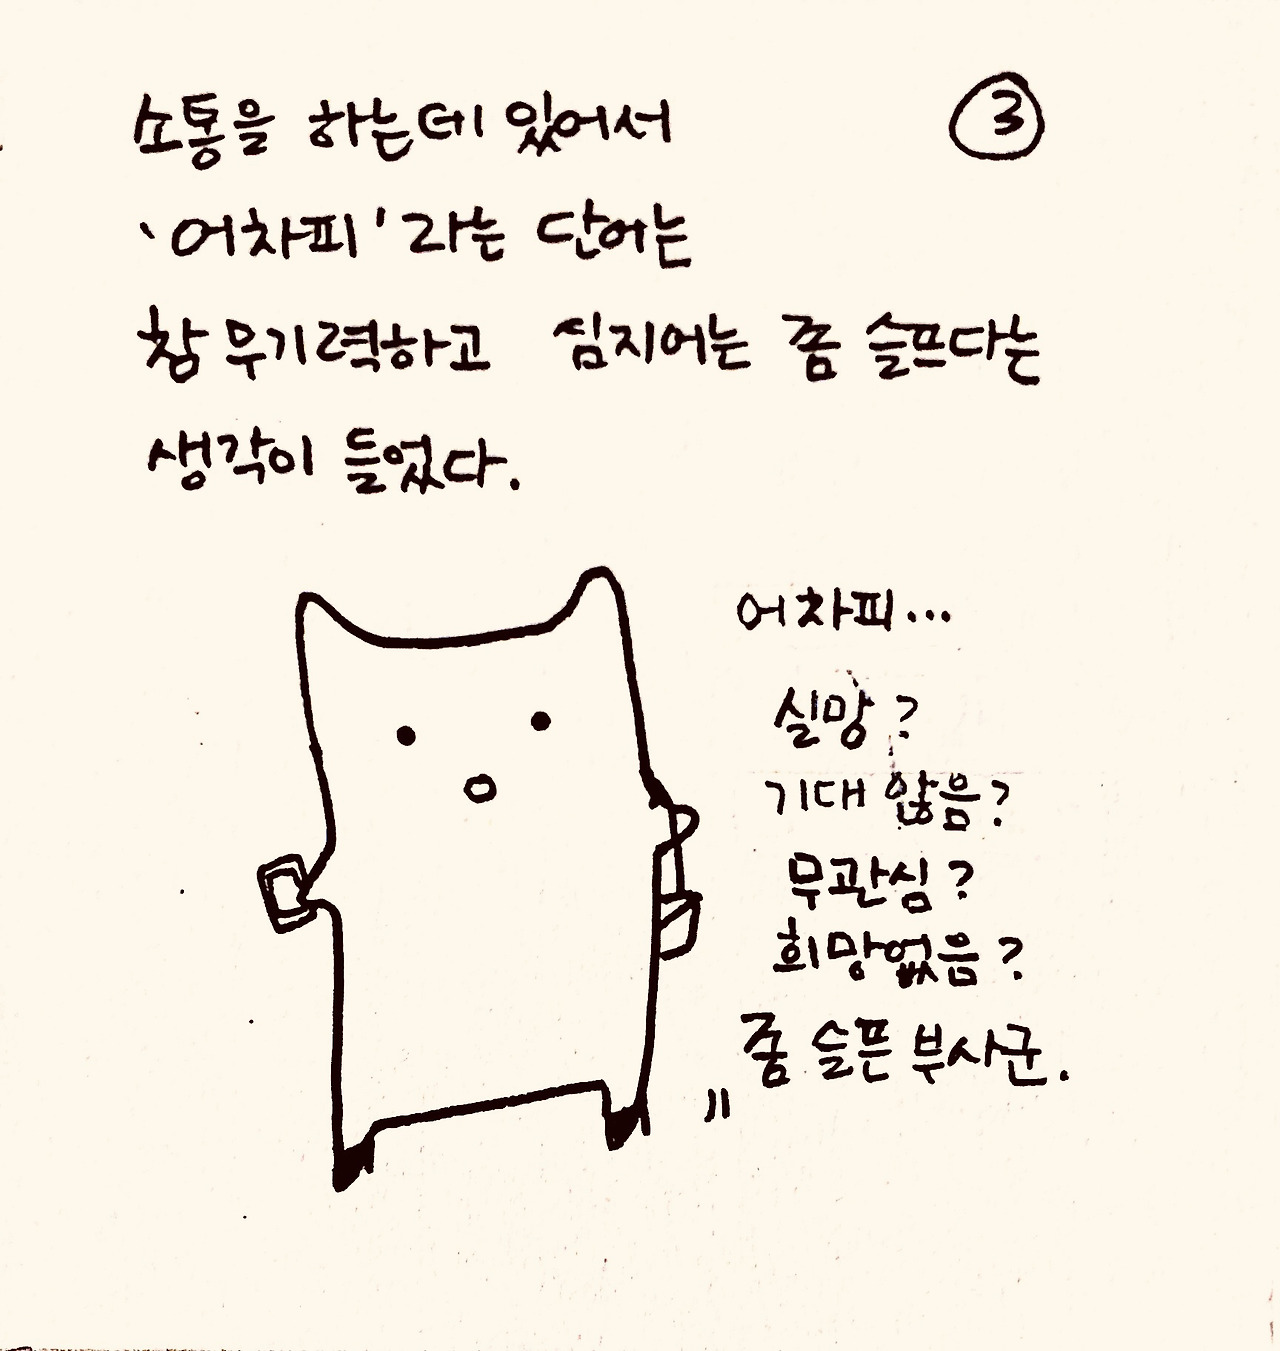 소통을 하는데 있어서
③
'어차피'라는 단어는
참 무기력하고 심지어는 좀 슬프다는
생각이 들었다.
어차피...
실망?
기대 않음?
무관심?
희망없음?
좀 슬픈 부사군.